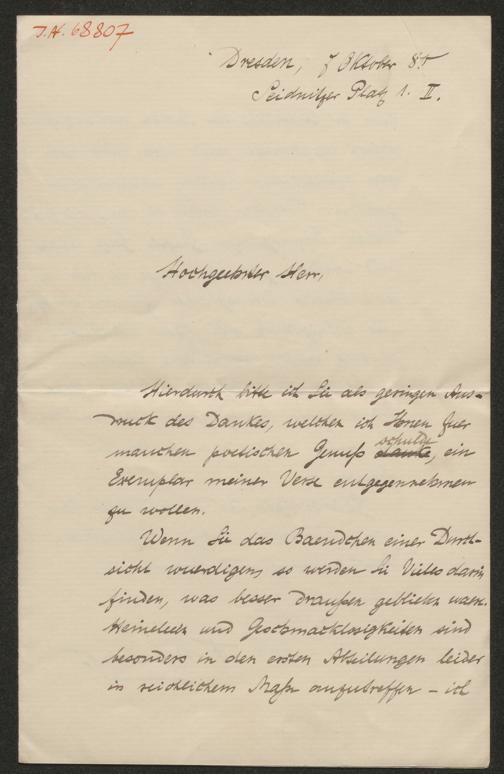 J.N. 68807
Dresden, 7 Oktober 85
Seidnitzer Platz 1. II.
Hochgeehrter Herr,
Hierdurch bitte ich Sie als geringen Aus-
druck des Dankes, welchen ich Ihnen fuer
manchen poetischen Genuß danke schulde, ein
Exemplar meiner Verse entgegennehmen
zu wollen.
Wenn Sie das Baendchen einer Durch-
sicht wuerdigen, so werden Sie Vieles darin
finden, was besser draußen geblieben waere.
Heineleien und Geschmacklosigkeiten sind
besonders in den ersten Abteilungen leider
in reichlichem Maße anzutreffen – ich